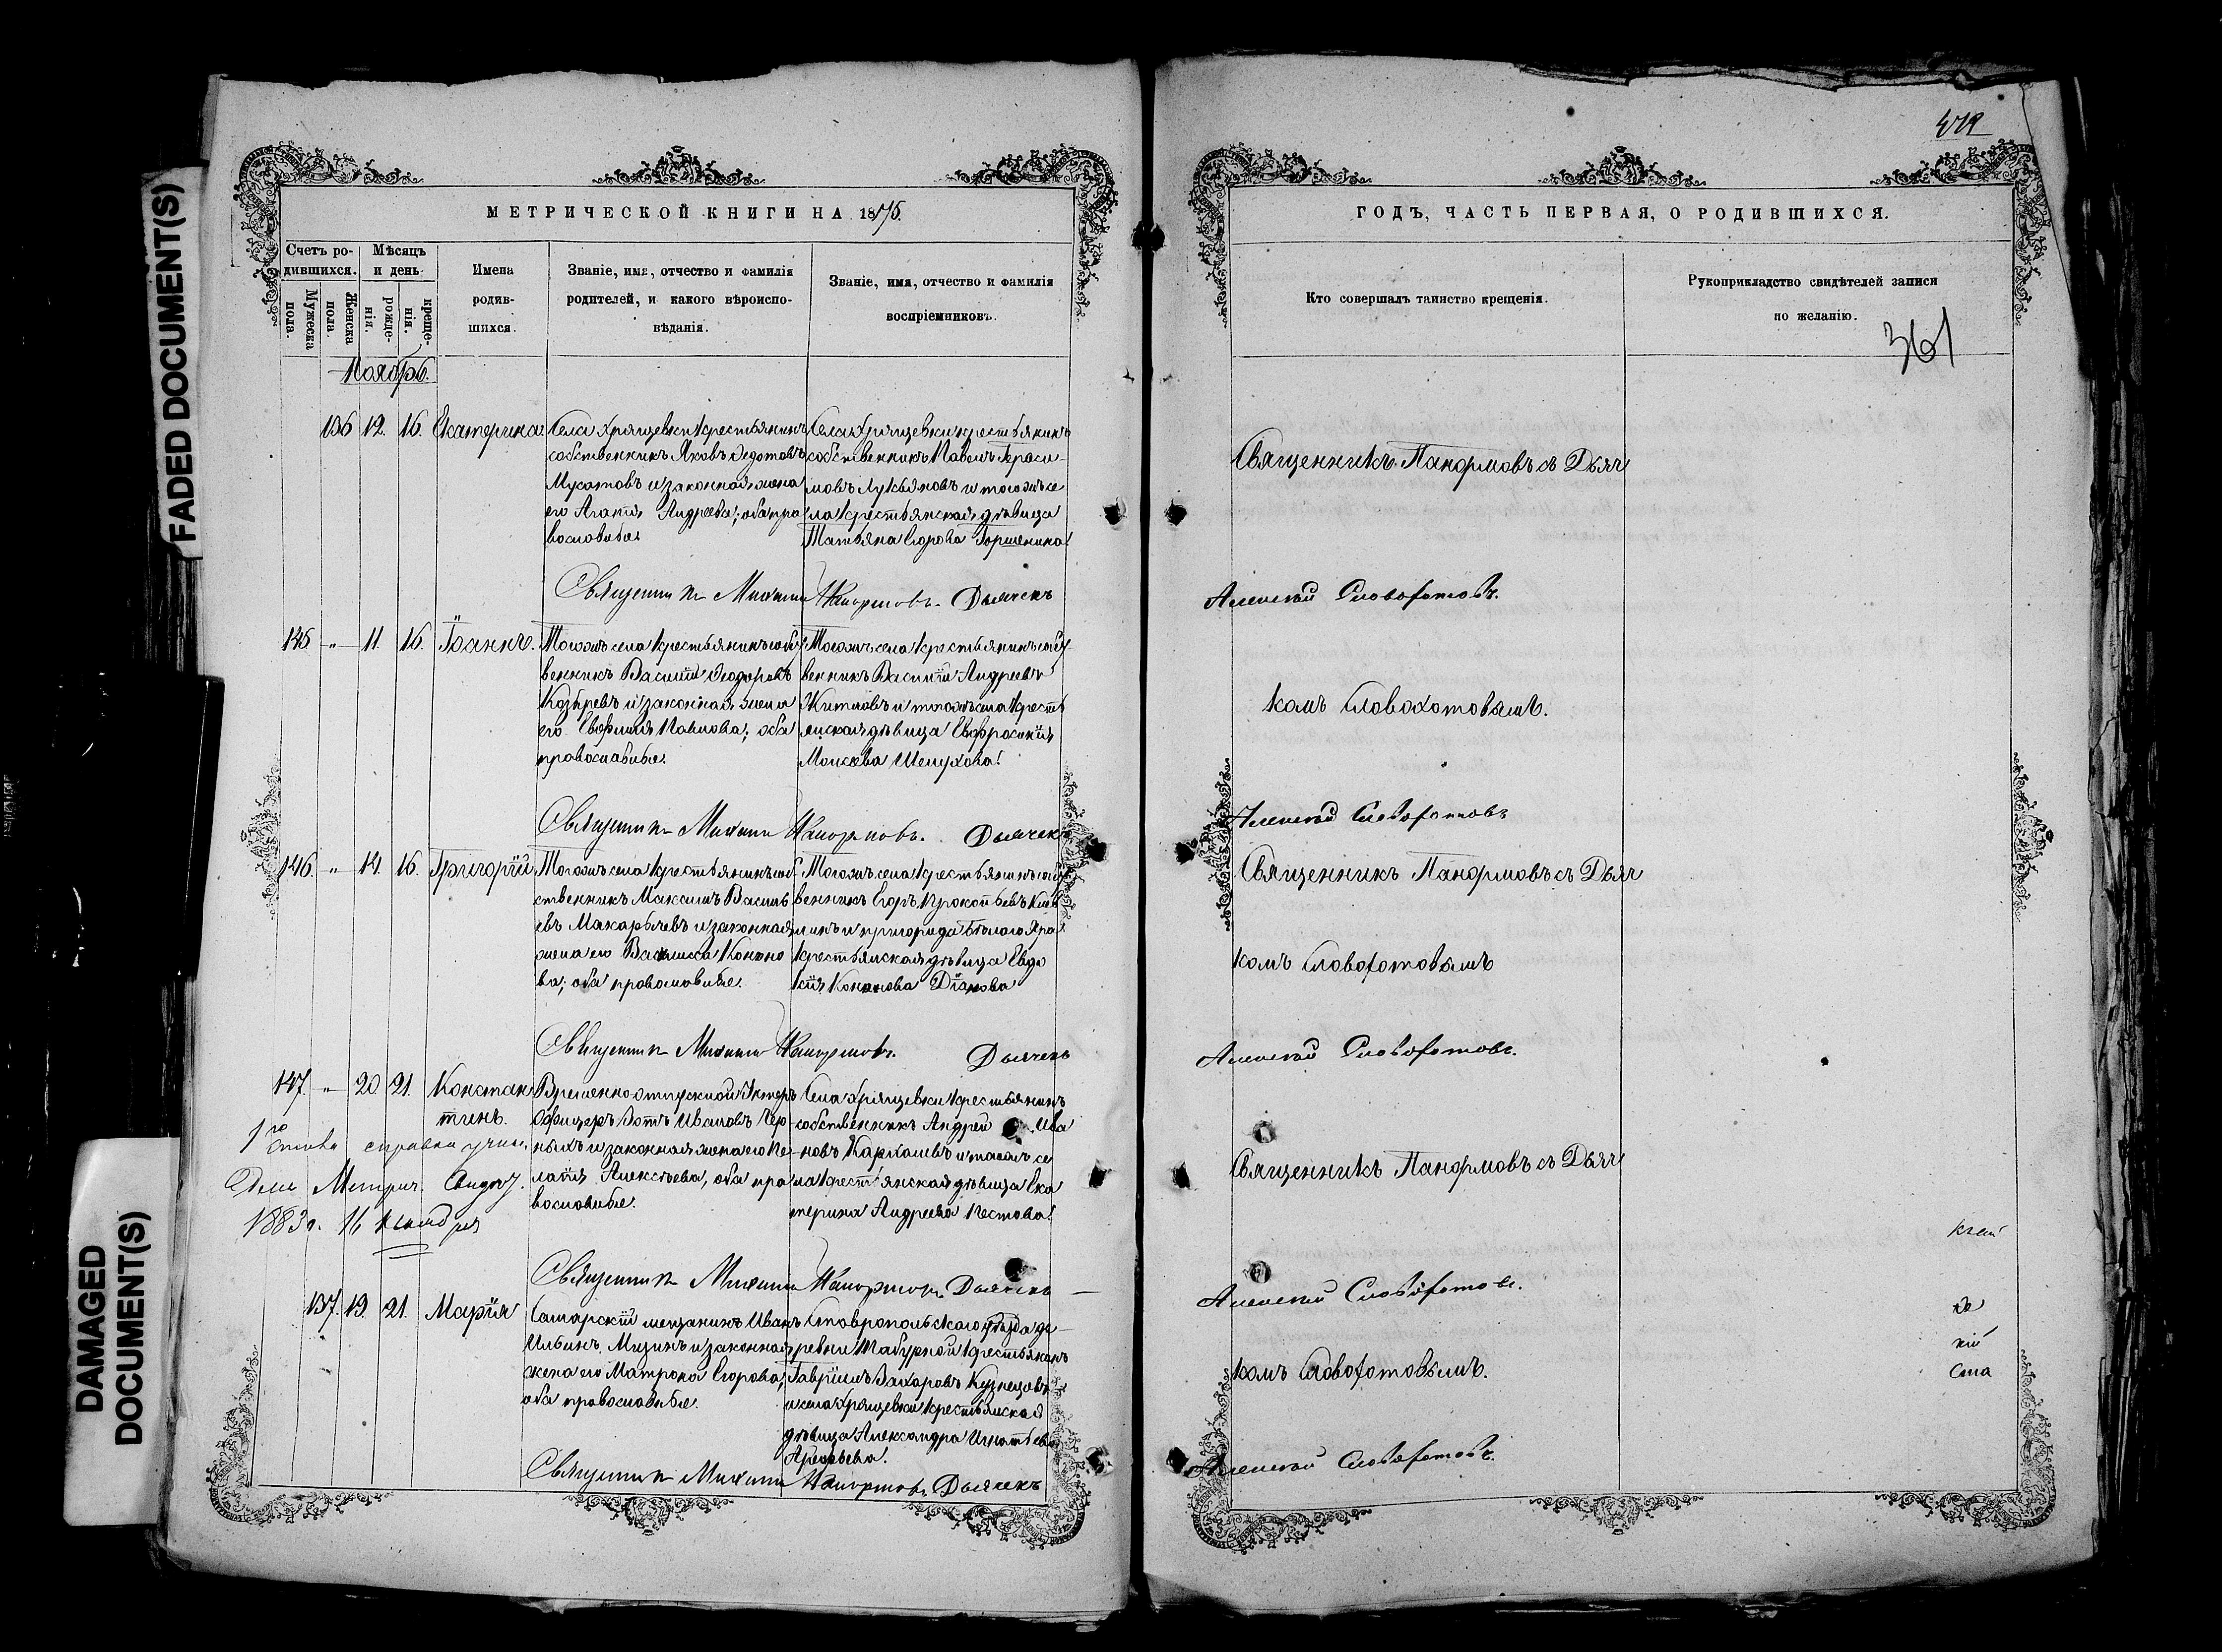 FADED DOCUMENT(S)
DAMAGED
DOCUMENT(S)
МЕТРИЧЕСКОЙ КНИГИ НА 1875.
Счетъ ро-
дившихся.
Мужеска
пола.
Женска
пола.
Мѣсяцъ
и день
рожде-
нія.
креще-
нія.
Имена
родив-
шихся.
Званіе, имя, отчество и фамилія
родителей, и какого вѣроиспо-
вѣданія.
Званіе, имя, отчество и фамилія
воспріемниковъ.
Ноябрь.
136 12. 16. Екатерина.
Села Хрящевки крестьянинъ
собственникъ Яковъ Ѳедотовъ
Мусатовъ и законная жена
его Агапія Андреева; оба пра
вославные.
Села Хрящевки крестьянинъ
собственникъ Павелъ Гераси-
мовъ Лукьяновъ и тогожъ се
ла крестьянская дѣвица
Татьяна Егорова Горшенина.
Священникъ Михаилъ Панормовъ. Дьячекъ
145 " 11. 16. Іоаннъ.
Тогожъ села крестьянинъ собст
венникъ Василій Ѳеодоровъ
Козыревъ и законная жена
его Евфимія Павлова; оба
православные.
Тогожъ села крестьянинъ собст
венникъ Василій Андреевъ
Житловъ и тогожъ села крестья
янская дѣвица Евфросинія
Моисеева Шелухова.
Священникъ Михаилъ Панормовъ. Дьячекъ
146. " 14. 16. Григорій
Тогожъ села крестьянинъ соб
ственникъ Максимъ Василь
евъ Макарычевъ и законная
жена его Василисса Конано
ва; оба православные.
Тогожъ села крестьянинъ собст
венникъ Егоръ Прокопьевъ
и пригорода Бѣлаго Яра
крестьянская дѣвица Евдо
кія Конанова
Священникъ Михаилъ Панормовъ. Дьячекъ
147. " 20. 21. Констан
тинъ.
Временноотпускной Унтеръ
Офицеръ Зотъ Ивановъ Чер-
ныхъ и законная жена его Пе-
лагія Алексѣева, оба пра
вославные.
Села Хрящевки крестьянинъ
собственникъ Андрей Ива
новъ и тогожъ се
ла крестьянская дѣвица Ека
терина Андреева Пестова.
справка
Метрич.
1883 г. 16
Священникъ Михаилъ Панормовъ Дьячекъ
137. 19. 21. Марія
Самарскій мещанинъ Иванъ
Ильинъ Мизинъ и законная
жена его Матрона Егорова;
оба православные.
Ставропольскаго уѣзда де-
ревни Табурной крестьянинъ
Гавріилъ Захаровъ Кузнецовъ
и села Хрящевки крестьянская
дѣвица Александра Игнатьева
Арефьева.
Священникъ Михаилъ Панормовъ Дьячекъ
ГОДЪ, ЧАСТЬ ПЕРВАЯ, О РОДИВШИХСЯ.
Кто совершалъ таинство крещенія.
Рукоприкладство свидѣтелей записи
по желанію.
361
Священникъ Панормовъ съ Дьяч
Алексѣй Словохотовъ.
комъ Словохотовымъ.
Алексѣй Словохотовъ
Священникъ Панормовъ съ Дьяч
комъ Словохотовымъ
Алексѣй Словохотовъ.
Священникъ Панормовъ съ Дьяч
Алексѣй Словохотовъ.
комъ Словохотовымъ.
Алексѣй Словохотовъ.